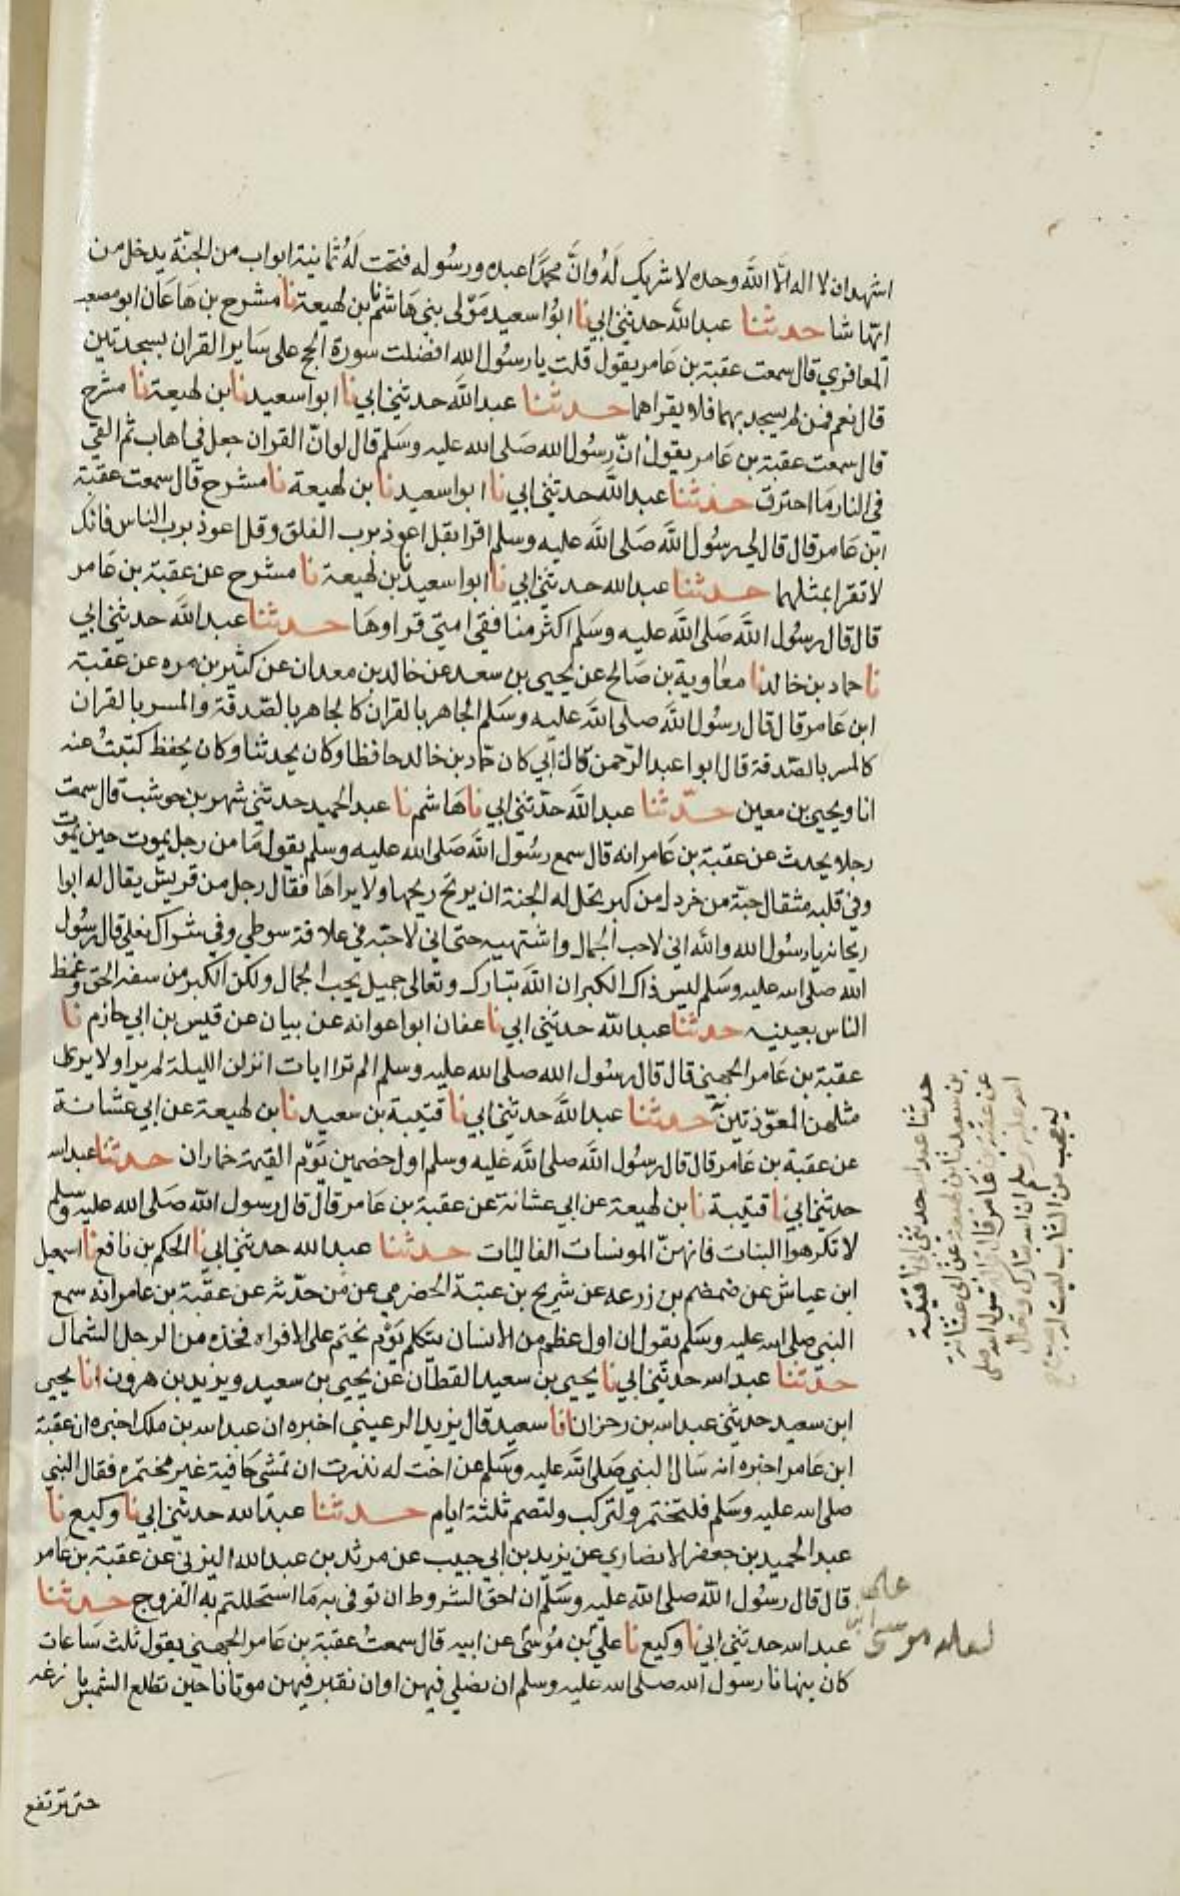 اشهد ان لا اله الا الله وحده لا شريك له وان محمدا عبده ورسوله فتحت له ثمانية ابواب من الجنة يدخل من
ايها شا حدثنا عبد الله حدثني ابي نا ابوا سعيد مولى بني هاشم نا بن لهيعة نا مشرح بن هاعان ابو مصعب
المعافري قال سمعت عقبة بن عامر يقول قلت يا رسول الله افضلت سورة الحج على ساير القران بسجدتين
قال نعم فمن لم يسجد بهما فلا يقراهما حدثنا عبد الله حدثني ابي نا ابوا سعيد نا بن لهيعة نا مشرح
قال سمعت عقبة بن عامر يقول ان رسول الله صلى الله عليه وسلم قال لو ان القران جعل في اهاب ثم القي
في النار ما احترق حدثنا عبد الله حدثني ابي نا ابوا سعيد نا بن لهيعة نا مشرح قال سمعت عقبة
ابن عامر قال قال لي رسول الله صلى الله عليه وسلم اقرا بقل اعوذ برب الفلق وقل اعوذ برب الناس فانك
لا تقرا بمثلهما حدثنا عبد الله حدثني ابي نا ابوا سعيد نا بن لهيعة نا مشرح عن عقبة بن عامر
قال قال رسول الله صلى الله عليه وسلم اكثر منافقي امتي قراوها حدثنا عبد الله حدثني ابي
نا حماد بن خالد نا معاوية بن صالح عن يحيى بن سعد عن خالد بن معدان عن كثير بن مره عن عقبة
ابن عامر قال قال رسول الله صلى الله عليه وسلم الجاهر بالقران كالجاهر بالصدقة والمسر بالقران
كالمسر بالصدقة قال ابوا عبد الرحمن قال ابي كان حماد بن خالد حافظا وكان يحدثنا وكان يحفظ كتبت عنه
انا ويحيى بن معين حدثنا عبد الله حدثني ابي نا هاشم نا عبد الحميد حدثني شهر بن حوشب قال سمعت
رجلا يحدث عن عقبة بن عامر انه قال سمع رسول الله صلى الله عليه وسلم يقول ما من رجل يموت حين يموت
وفي قلبه مثقال حبة من خردل من كبر تحل له الجنة ان يريح ريحها ولا يراها فقال رجل من قريش يقال له ابوا
ريحانه يا رسول الله والله اني لاحب الجمال واشتهيه حتى اني لاحبه في علاقة سوطي وفي شراك نعلي قال رسول
الله صلى الله عليه وسلم ليس ذاك الكبر ان الله تبارك وتعالى جميل يحب الجمال ولكن الكبر من سفه الحق وغمط
الناس بعينيه حدثنا عبد الله حدثني ابي نا عفان ابوا عوانه عن بيان عن قيس بن ابي حازم نا
عقبة بن عامر الجهني قال قال رسول الله صلى الله عليه وسلم الم تر ايات انزلن الليلة لم ير او لا يرى
مثلهن المعوذتين حدثنا عبد الله حدثني ابي نا قتيبة بن سعيد نا بن لهيعة عن ابي عشانة
عن عقبة بن عامر قال قال رسول الله صلى الله عليه وسلم اول خصمين يوم القيمة جاران حدثنا عبد الله
حدثني ابي نا قتيبة نا بن لهيعة عن ابي عشانة عن عقبة بن عامر قال قال رسول الله صلى الله عليه وسلم
لا تكرهوا البنات فانهن المونسات الغاليات حدثنا عبد الله حدثني ابي نا الحكم بن نافع نا اسمعيل
ابن عياش عن ضمضم بن زرعه عن شريح بن عبيد الحضرمي عن من حدثه عن عقبة بن عامر انه سمع
النبي صلى الله عليه وسلم يقول ان اول عظم من الانسان يتكلم يوم يختم على الافواه فخذه من الرجل الشمال
حدثنا عبد الله حدثني ابي نا يحيى بن سعيد القطان عن يحيى بن سعيد ويزيد بن هرون انا يحيى
ابن سعيد حدثني عبد الله بن زحر ان سعيد قال يزيد الرعيني اخبره ان عبد الله بن ملك اخبره ان عقبة
ابن عامر اخبره انه سال النبي صلى الله عليه وسلم عن اخت له نذرت ان تمشي حافية غير مختمره فقال النبي
صلى الله عليه وسلم فلتختمر ولتركب ولتصم ثلثة ايام حدثنا عبد الله حدثني ابي نا وكيع نا
عبد الحميد بن جعفر الانصاري عن يزيد بن ابي حبيب عن مرثد بن عبد الله اليزني عن عقبة بن عامر
قال قال رسول الله صلى الله عليه وسلم ان احق الشروط ان توفى به ما استحللتم به الفروج حدثنا
عبد الله حدثني ابي نا وكيع نا علي بن موسى عن ابيه قال سمعت عقبة بن عامر الجهني يقول ثلث ساعات
كان ينهانا رسول الله صلى الله عليه وسلم ان نصلي فيهن او ان نقبر فيهن موتانا حين تطلع الشمس بازغه
حتى ترتفع
حدثنا عبد الله حدثني ابي نا قتيبة
بن سعيد نا بن لهيعة عن ابي عشانة
عن عقبة بن عامر قال قال رسول الله صلى
الله عليه وسلم ان الله تبارك وتعال
ليعجب من الشاب ليست له صبوة
على
لعله موسى ابن